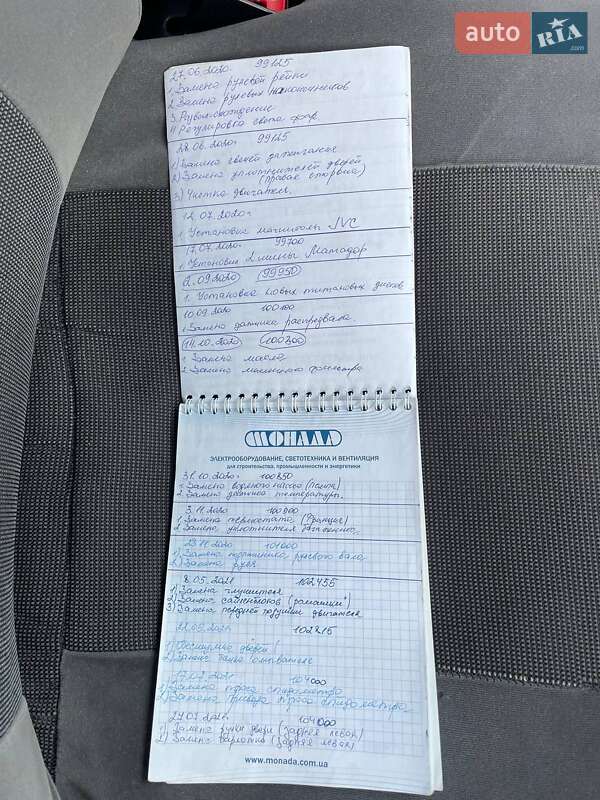 auto RIA .com
27.06.2020г 99125
1. Замена рулевой рейки
2. Замена рулевых наконечников
3. Развал-схождение
4. Регулировка света фар
28.06.2020г 99125
1) Замена свечей зажигания
2) Замена уплотнителей дверей
(правая сторона)
3) Чистка двигателя.
12.07.2020г
1. Установка магнитолы JVC
17.07.2020г 99700
1. Установка 2 шины Матадор
2.09.2020 99950
1. Установка новых титановых дисков
10.09.2020 100100
1. Замена датчика распредвала.
14.10.2020 100300
1. Замена масла
2. Замена масляного фильтра
МОНАДА
ЭЛЕКТРООБОРУДОВАНИЕ, СВЕТОТЕХНИКА И ВЕНТИЛЯЦИЯ
для строительства, промышленности и энергетики
31.10.2020г 100850
1. Замена водяного насоса (помпа)
2. Замена датчика температуры.
3.11.2020 100900
1. Замена термостата (Франция)
2. Замена уплотнителя
29.11.2020 101000
1) Замена подшипника рулевого вала
2) Замена
8.05.2021 102455
1) Замена глушителя
2) Замена сайлентблоков ("ромашки")
3) Замена передней подушки двигателя
22.05.2021г 102815
1) дверей
2) Замена
104000
1) Замена троса спидометра
2) Замена привода троса спидометра
27.07.2021г 104000
1) Замена ручки двери (задняя левая)
2) Замена (задняя левая)
www.monada.com.ua